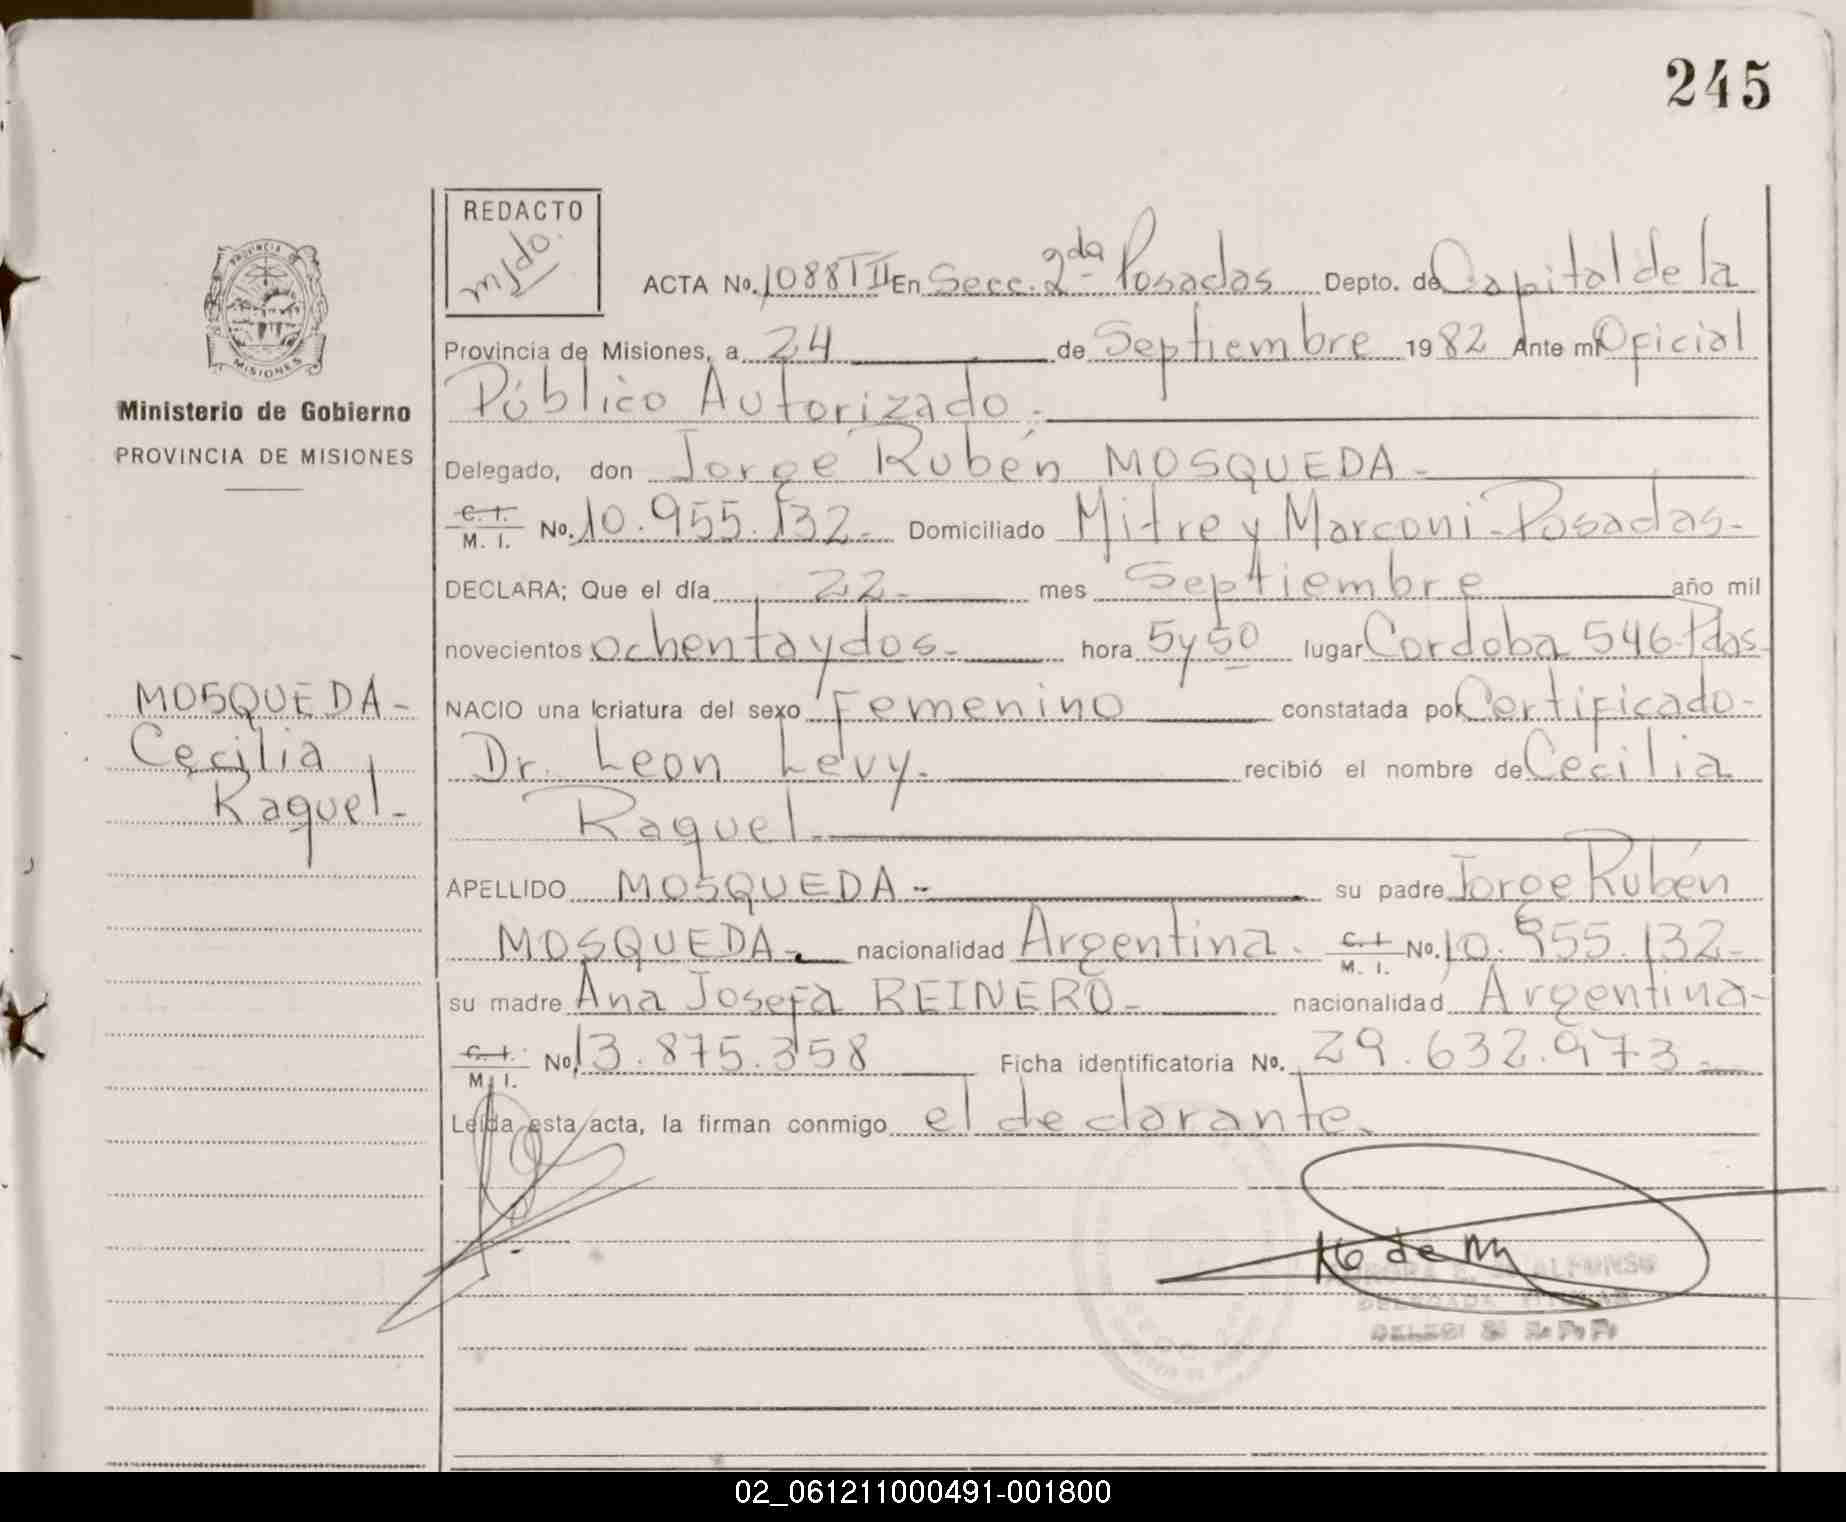 245
REDACTO
mjdo.
PROVINCIA
MISIONES
Ministerio de Gobierno
PROVINCIA DE MISIONES
ACTA No. 1088 TII En Secc. 2da Posadas Depto. de Capital de la
Provincia de Misiones, a 24 de Septiembre 1982 Ante mi Oficial
Público Autorizado.
Delegado, don Jorge Rubén MOSQUEDA-
C. I.
M. I. No. 10.955.132- Domiciliado Mitre y Marconi-Posadas-
DECLARA; Que el día 22- mes Septiembre año mil
novecientos ochentaydos- hora 5y50 lugar Cordoba 546-Pdas-
MOSQUEDA-
Cecilia
Raquel-
NACIO una criatura del sexo Femenino constatada por Certificado-
Dr. Leon Levy. recibió el nombre de Cecilia
Raquel-
APELLIDO MOSQUEDA- su padre Jorge Rubén
MOSQUEDA- nacionalidad Argentina. C. I. M. I. No. 10.955.132-
su madre Ana Josefa REINERO- nacionalidad Argentina-
C. I.
M. I. No. 13.875.358 Ficha identificatoria No. 29.632.973-
Leída esta acta, la firman conmigo el declarante.
ALFONSO
02_061211000491-001800